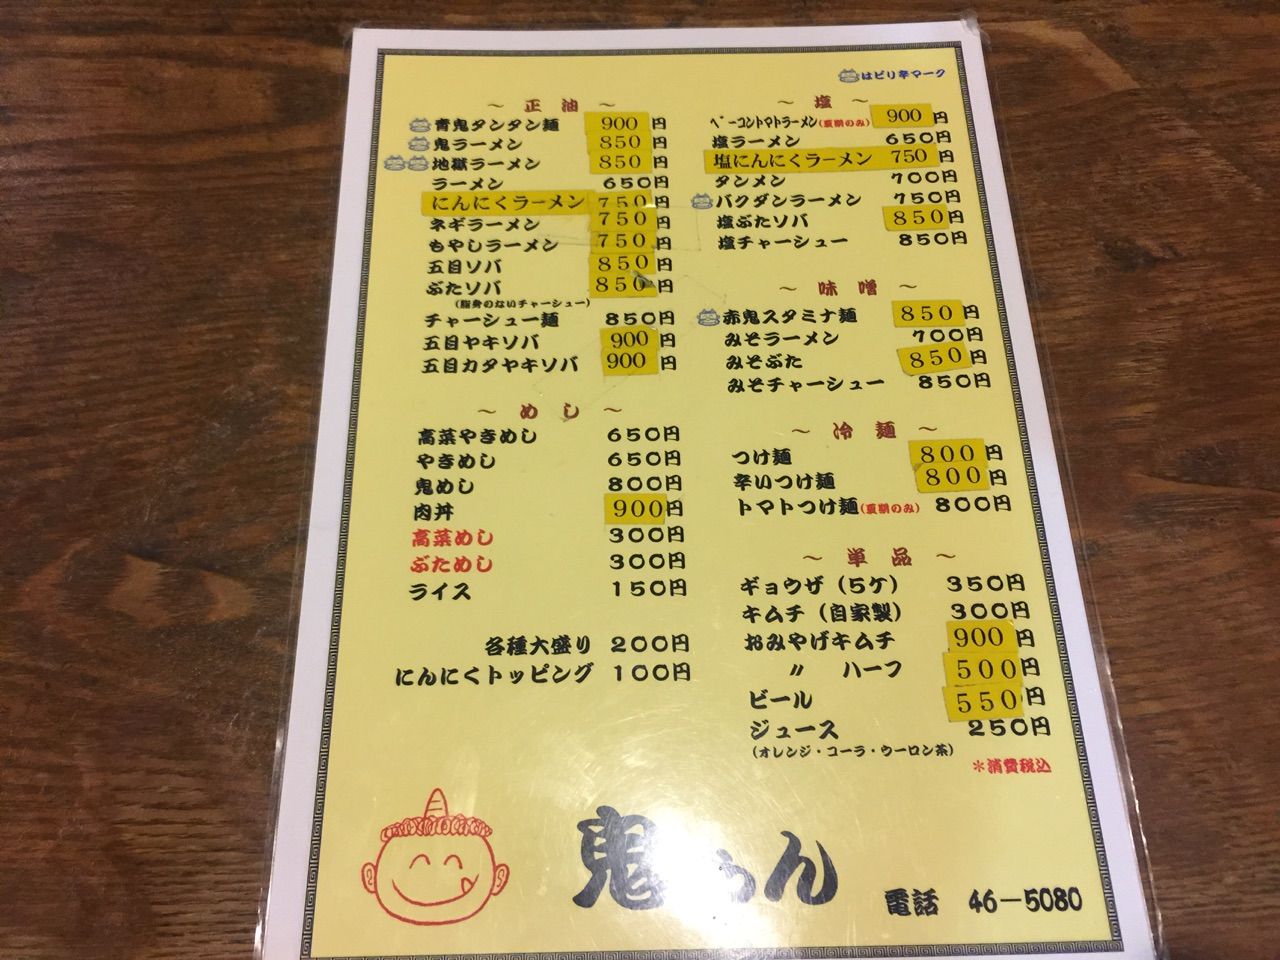 はピリ辛マーク
～ 正 油 ～
青鬼タンタン麺 900円
鬼ラーメン 850円
地獄ラーメン 850円
ラーメン 650円
にんにくラーメン 750円
ネギラーメン 750円
もやしラーメン 750円
五目ソバ 850円
ぶたソバ 850円
(脂身のないチャーシュー)
チャーシュー麺 850円
五目ヤキソバ 900円
五目カタヤキソバ 900円
～ め し ～
高菜やきめし 650円
やきめし 650円
鬼めし 800円
肉丼 900円
高菜めし 300円
ぶためし 300円
ライス 150円
各種大盛り 200円
にんにくトッピング 100円
～ 塩 ～
ベーコントマトラーメン(夏期のみ) 900円
塩ラーメン 650円
塩にんにくラーメン 750円
タンメン 700円
バクダンラーメン 750円
塩ぶたソバ 850円
塩チャーシュー 850円
～ 味 噌 ～
赤鬼スタミナ麺 850円
みそラーメン 700円
みそぶた 850円
みそチャーシュー 850円
～ 冷 麺 ～
つけ麺 800円
辛いつけ麺 800円
トマトつけ麺(夏期のみ) 800円
～ 単 品 ～
ギョウザ（5ケ） 350円
キムチ（自家製） 300円
おみやげキムチ 900円
〃 ハーフ 500円
ビール 550円
ジュース 250円
(オレンジ・コーラ・ウーロン茶)
＊消費税込
電話 46－5080